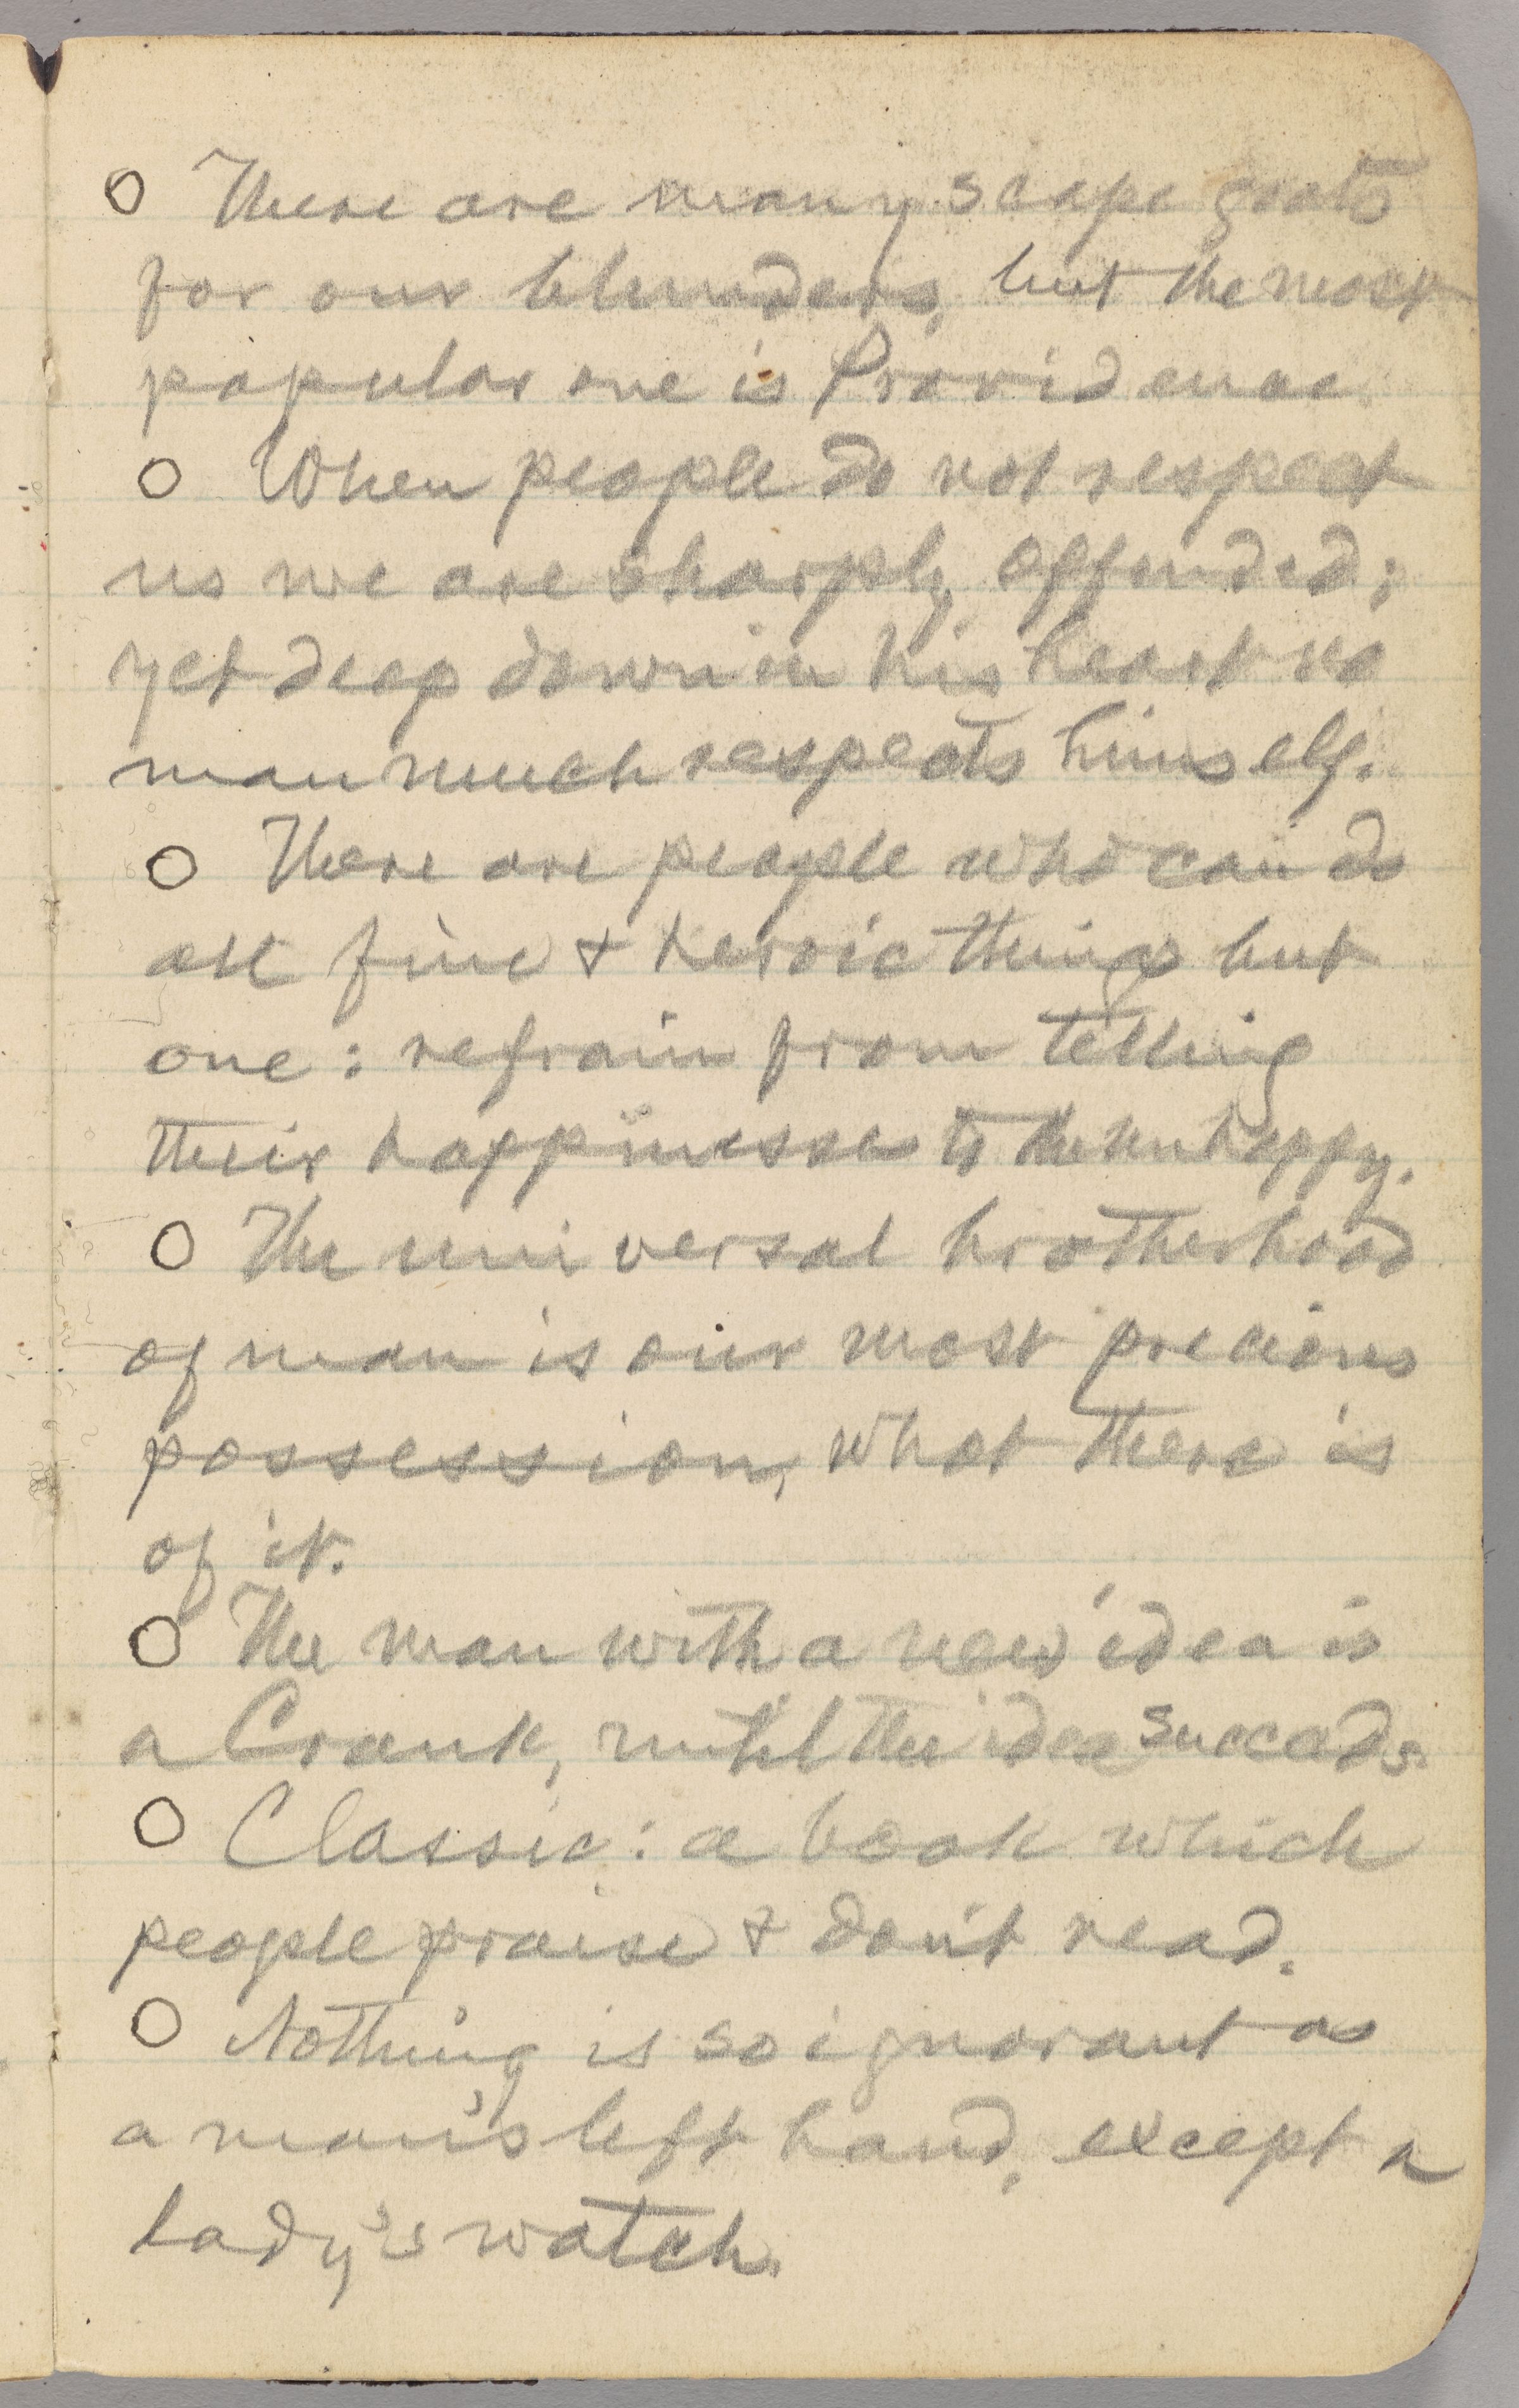 O There are many scape goats
for our blunders, but the most
popular one is Providence.
O When people do not respect
us we are sharply offended;
yet deep down in his heart no
man much respects himself.
O There are people who can do
all fine & heroic things but
one: refrain from telling
their happinesses to the unhappy.
O The universal brotherhood
of man is our most precious
possession, what there is
of it.
O The man with a new idea is
a Crank, until the idea succeeds.
O Classic: a book which
people praise & don't read.
O Nothing is so ignorant as
a man's left hand, except a
lady's watch.